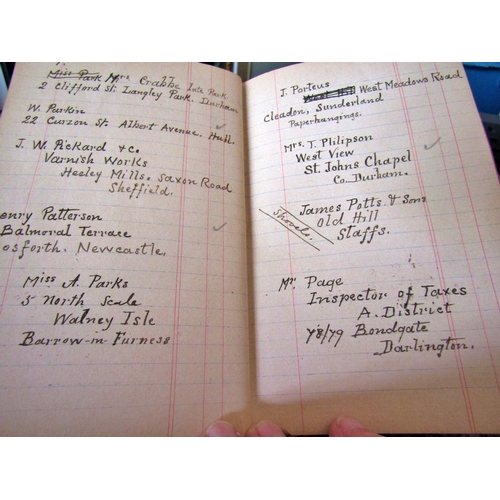 Miss Park Mrs Crabbe late Park
2 Clifford St. Langley Park. Durham
W. Parkin
22 Curzon St. Albert Avenue. Hull.
J. W. Pickard & Co.
Varnish Works
Heeley Mills. Saxon Road
Sheffield.
enry Patterson
Balmoral Terrace
osforth. Newcastle.
Miss A. Parks
5 North Scale
Walney Isle
Barrow-in-Furness
J. Porteus
West Meadows Road
Cleadon, Sunderland
Paperhangings.
Mrs. T. Philipson
West View
St. Johns Chapel
Co. Durham.
James Potts & Sons
Shovels.
Old Hill
Staffs.
Mr Page
Inspector of Taxes
A. District
78/79 Bondgate
Darlington.